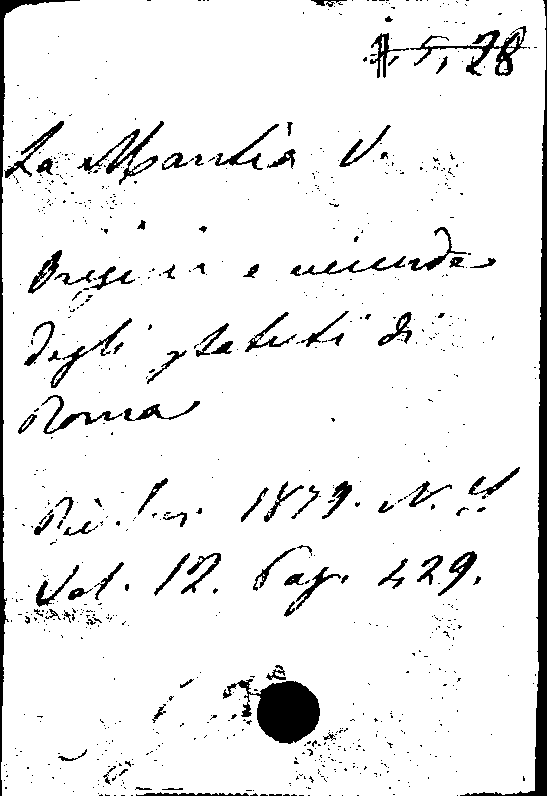 1. 5, 28
La Mantia V.
Origini e vicende
degli statuti di
Roma
1879. N. 4
Vol. 12. Pag. 429.